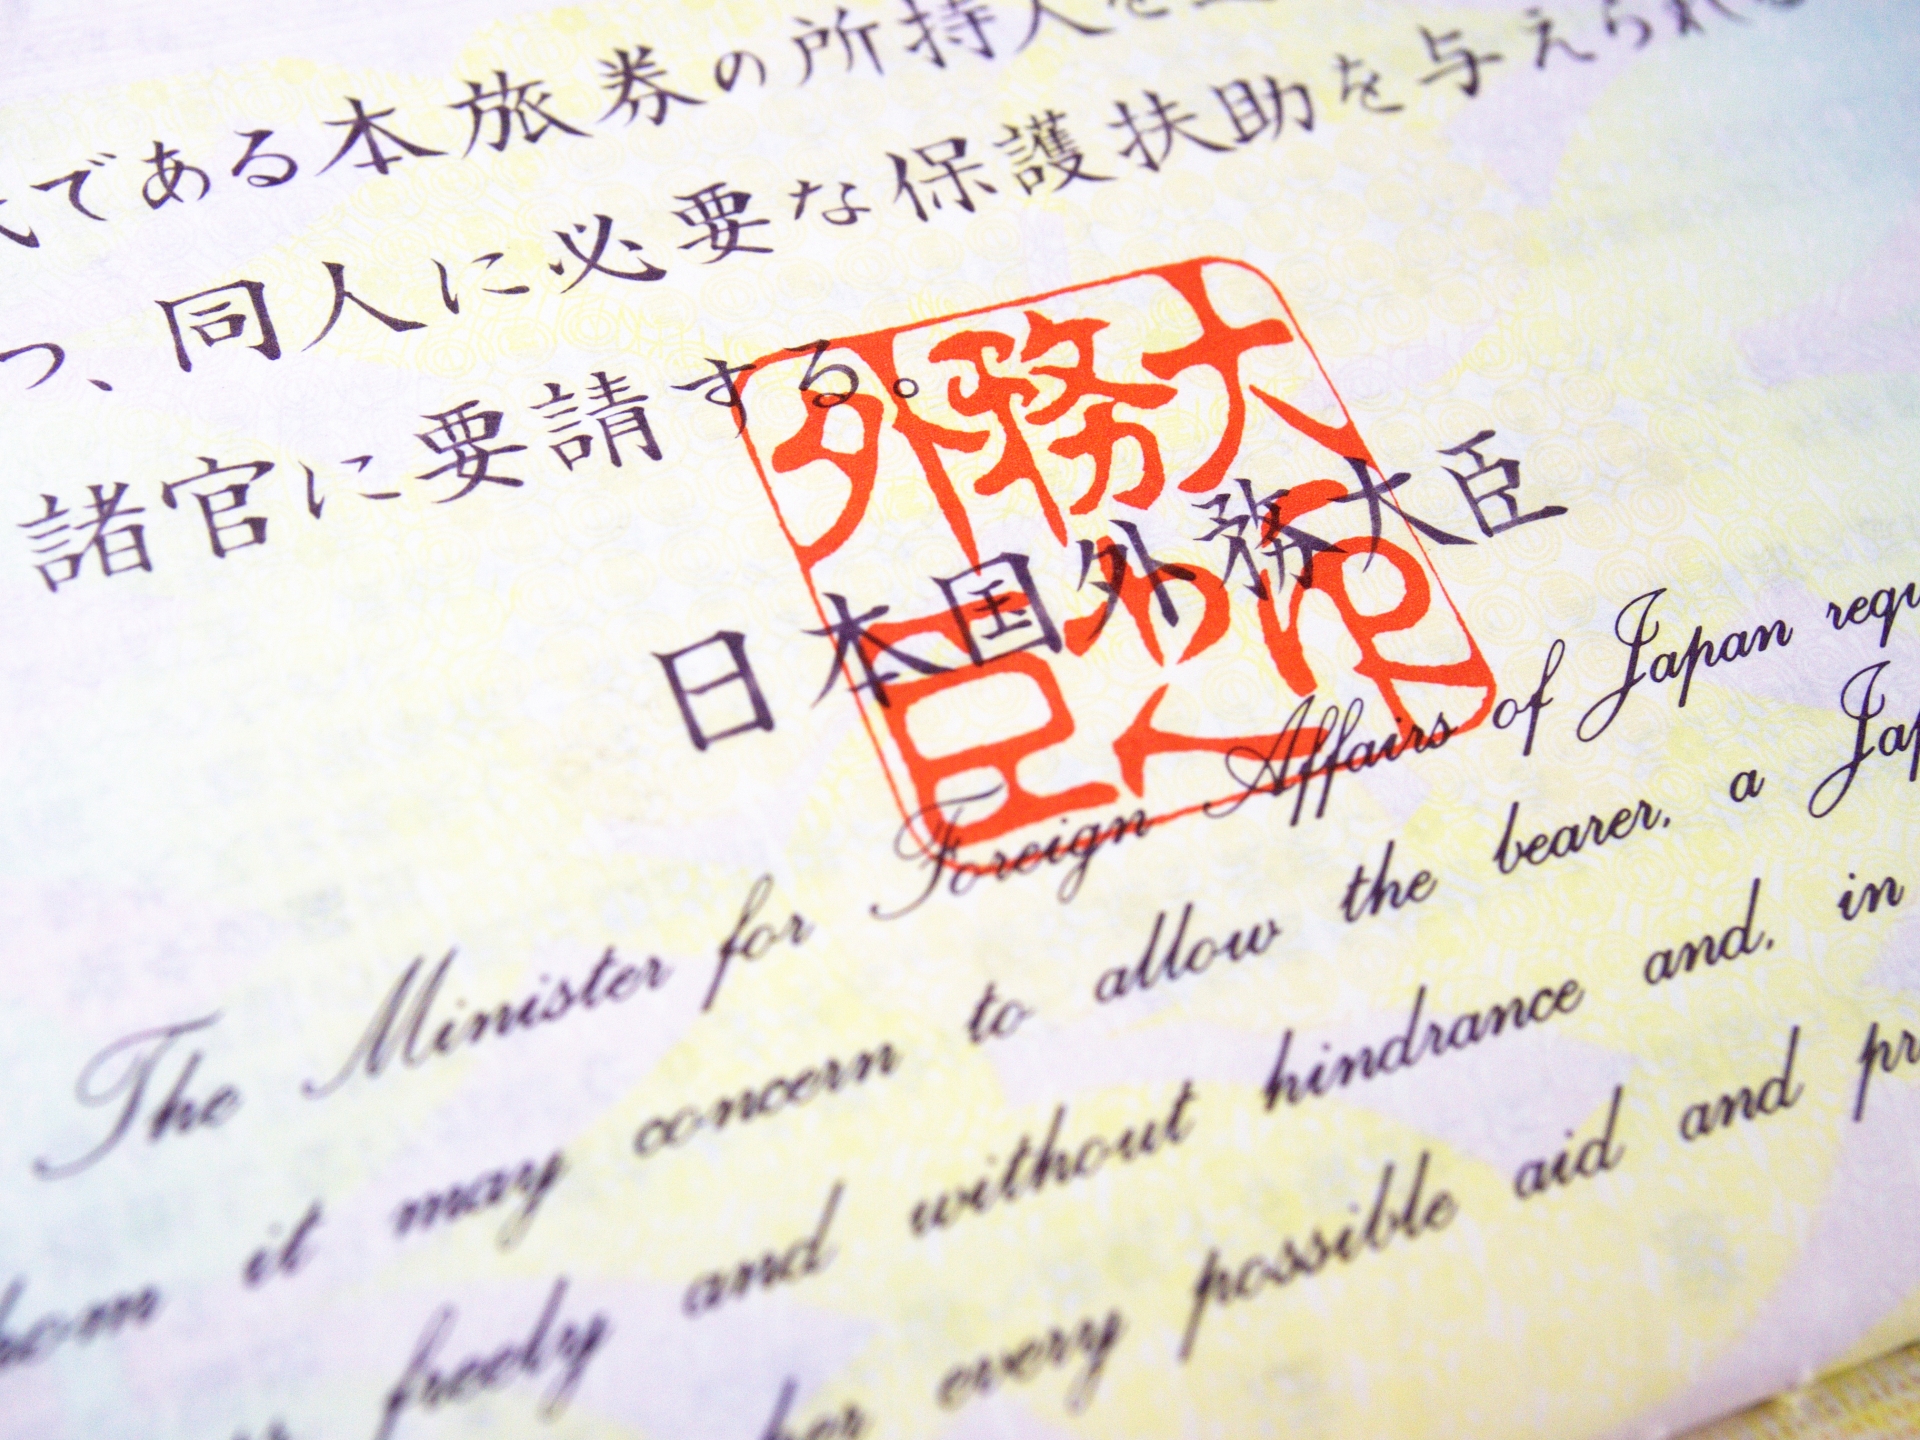 である本旅券の所持人を
つ、同人に必要な保護扶助を与えられる
諸官に要請する。
日本国外務大臣
外務大臣之印
The Minister for Foreign Affairs of Japan
it may concern to allow the bearer, a
freely and without hindrance and, in
every possible aid and